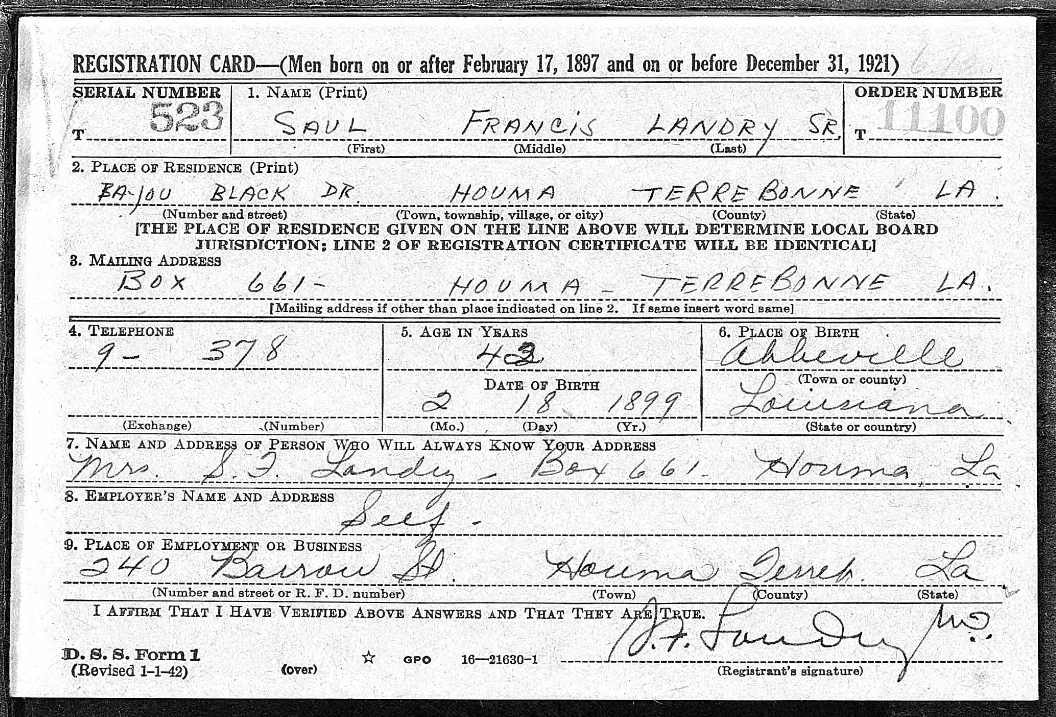 REGISTRATION CARD—(Men born on or after February 17, 1897 and on or before December 31, 1921)
SERIAL NUMBER 1. NAME (Print) ORDER NUMBER
T 523 SAUL FRANCIS LANDRY SR. T 11100
(First) (Middle) (Last)
2. PLACE OF RESIDENCE (Print)
BAYOU BLACK DR. HOUMA TERREBONNE LA.
(Number and street) (Town, township, village, or city) (County) (State)
[THE PLACE OF RESIDENCE GIVEN ON THE LINE ABOVE WILL DETERMINE LOCAL BOARD
JURISDICTION; LINE 2 OF REGISTRATION CERTIFICATE WILL BE IDENTICAL]
3. MAILING ADDRESS
BOX 661- HOUMA - TERREBONNE LA.
[Mailing address if other than place indicated on line 2. If same insert word same]
4. TELEPHONE 5. AGE IN YEARS 6. PLACE OF BIRTH
9- 378 43 Abbeville
DATE OF BIRTH (Town or county)
2 18 1899 Louisiana
(Exchange) (Number) (Mo.) (Day) (Yr.) (State or country)
7. NAME AND ADDRESS OF PERSON WHO WILL ALWAYS KNOW YOUR ADDRESS
Mrs. S. F. Landry - Box 661- Houma, La
8. EMPLOYER'S NAME AND ADDRESS
Self -
9. PLACE OF EMPLOYMENT OR BUSINESS
240 Barrow St. Houma Terreb. La
(Number and street or R. F. D. number) (Town) (County) (State)
I AFFIRM THAT I HAVE VERIFIED ABOVE ANSWERS AND THAT THEY ARE TRUE.
S. F. Landry
D. S. S. Form 1
(Revised 1-1-42) (over) ☆ GPO 16—21630-1 (Registrant's signature)